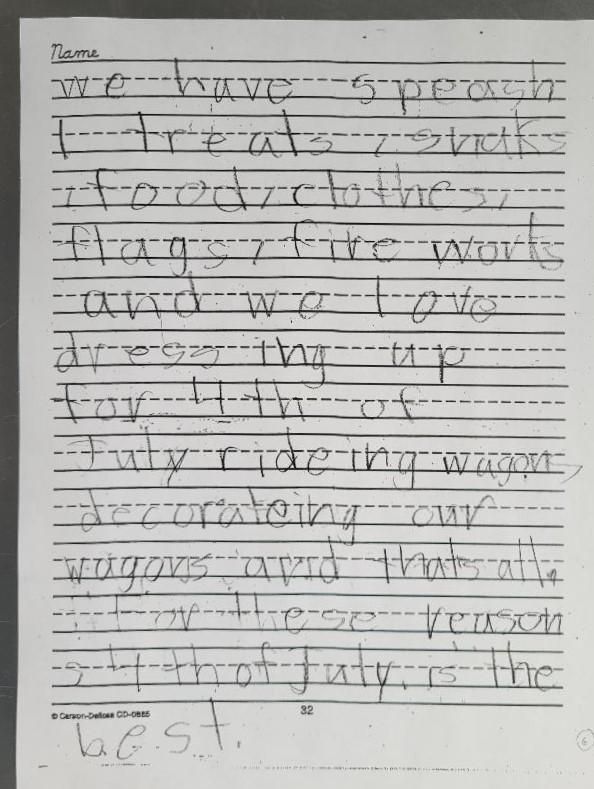 Name
we have speash
l treats, snaks
, food, clothes,
flags, fire works
and we love
dress ing up
for 4th of
July rideing wagons,
decorateing our
wagons and thats all.
For these reason
s 4th of July. is the
© Carson-Dellosa CD-0885
32
best.
6